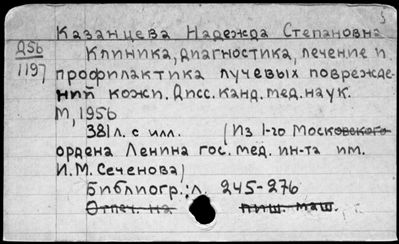 5
Казанцева Надежда Степановна
Д56
1197
Клиника, диагностика, лечение и
профилактика лучевых поврежде-
ний кожи. Дисс. канд. мед. наук.
М, 1956
381 л. с илл. (Из 1-го Московского
ордена Ленина гос. мед. ин-та им.
И. М. Сеченова)
Библиогр.: л. 245-276
Отпеч. на пиш. маш.